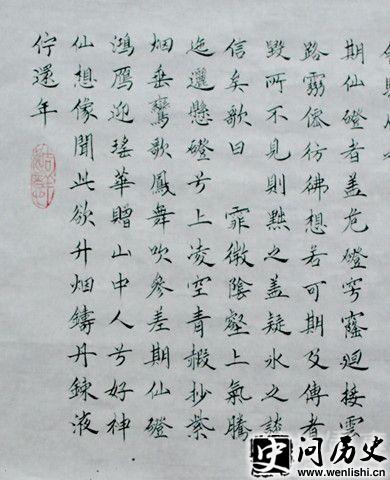 期仙磴者盖危磴穹窿迴接雲
路靈僊彷彿想若可期及傳者
毀所不見則黜之盖疑水之談
信矣歌曰 霏微陰壑上氣騰
迤邐懸磴兮上凌空青赮抄紫
烟垂鸞歌鳳舞吹參差期仙磴
鴻鴈迎瑤華贈山中人兮好神
仙想像聞此欲升烟鑄丹鍊液
佇還年
史问历史
www.wenlishi.cn